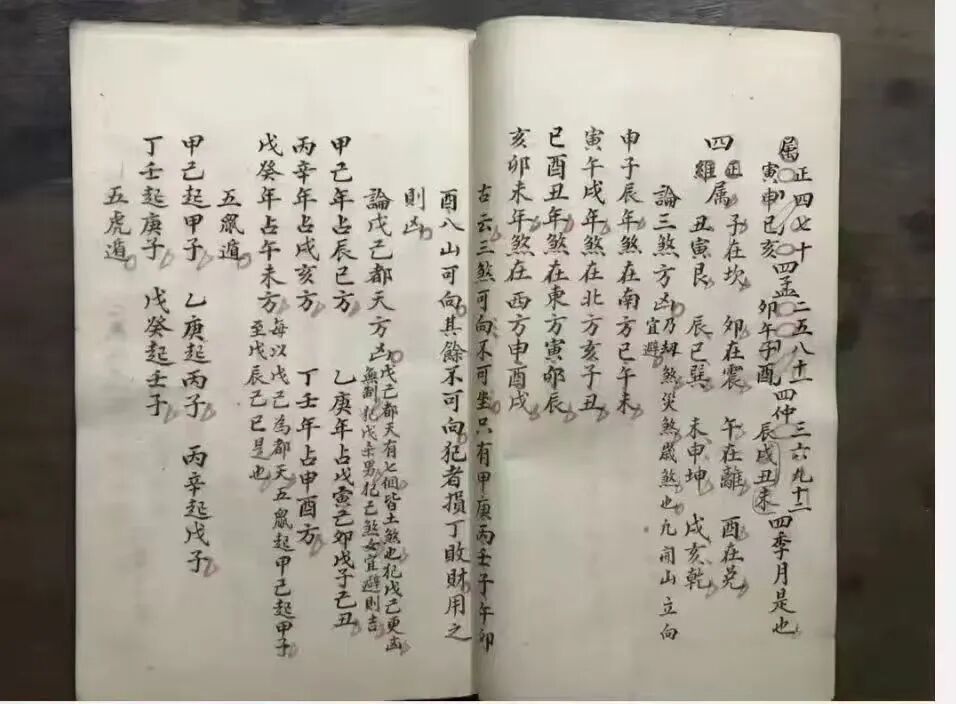 属正四七十
寅申巳亥四孟二五八十一卯午子酉四仲三六九十二辰戌丑未四季月是也
四正属子在坎 卯在震 午在離 酉在兑
四維属丑寅艮 辰巳巽 未申坤 戌亥乾
論三煞方凶乃劫煞災煞歲煞也凡開山立向宜避
申子辰年煞在南方巳午未
寅午戌年煞在北方亥子丑
巳酉丑年煞在東方寅卯辰
亥卯未年煞在西方申酉戌
古云三煞可向不可坐只有甲庚丙壬子午卯
酉八山可向其餘不可向犯者損丁敗財用之
則凶
論戊己都天方凶戊己都天有七個皆土煞也犯戊己更凶無制犯戊杀男犯己煞女宜避則吉
甲己年占辰巳方 乙庚年占戊寅己卯戊子己丑
丙辛年占戌亥方 丁壬年占申酉方
戊癸年占午未方每以戊己為都天五鼠起甲己起甲子至戊辰己巳是也
五鼠遁
甲己起甲子 乙庚起丙子 丙辛起戊子
丁壬起庚子 戊癸起壬子
五虎遁